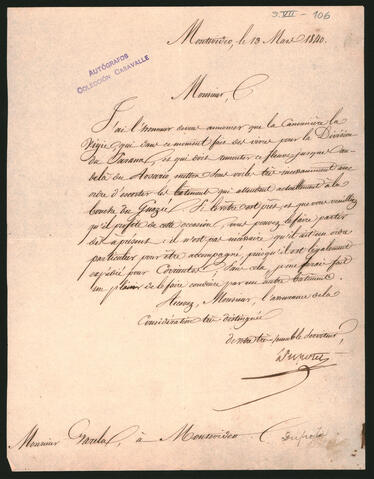 3-VII-106
AUTÓGRAFOS
COLECCIÓN CARAVALLE
Montevideo, le 13 Mars 1840.
Monsieur,
J'ai l'honneur de vous annoncer que la Canonnière la
Vigie, qui dans ce moment fait des vivres pour la Division
du Parana, et qui doit remonter ce fleuve jusque au
delà du Rosario, mettra sous voile très incessamment avec
ordre d'escorter les batiments qui attendent actuellement à la
bouche du Guazú. Si le votre est prêt et que vous vouliez
qu'il profite de cette occasion, vous pouvez le faire partir
dès à présent: il n'est pas nécessaire qu'il ait un ordre
particulier pour être accompagné, puisqu'il est légalement
expédié pour Corrientes. Sans cela, je me serais fait
un plaisir de le faire conduire par un autre batiment.
Recevez, Monsieur, l'assurance de la
Considération très distinguée
de votre très humble serviteur,
Dupotet
Monsieur Varela, à Montevideo
Dupotet